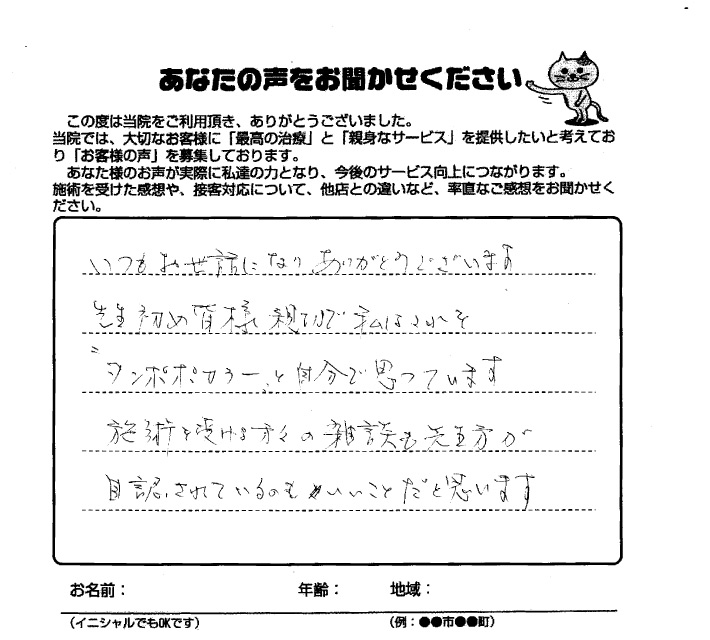 あなたの声をお聞かせください
この度は当院をご利用頂き、ありがとうございました。
当院では、大切なお客様に「最高の治療」と「親身なサービス」を提供したいと考えてお
り「お客様の声」を募集しております。
あなた様のお声が実際に私達の力となり、今後のサービス向上につながります。
施術を受けた感想や、接客対応について、他店との違いなど、率直なご感想をお聞かせく
ださい。
いつもお世話になりありがとうございます
先生初め皆様親切で私はそれを
"タンポポカラー"と自分で思っています
施術を受ける方々の雑談も先生方が
目認されているのもいいことだと思います
お名前：
年齢：
地域：
（イニシャルでもOKです）
（例：●●市●●町）